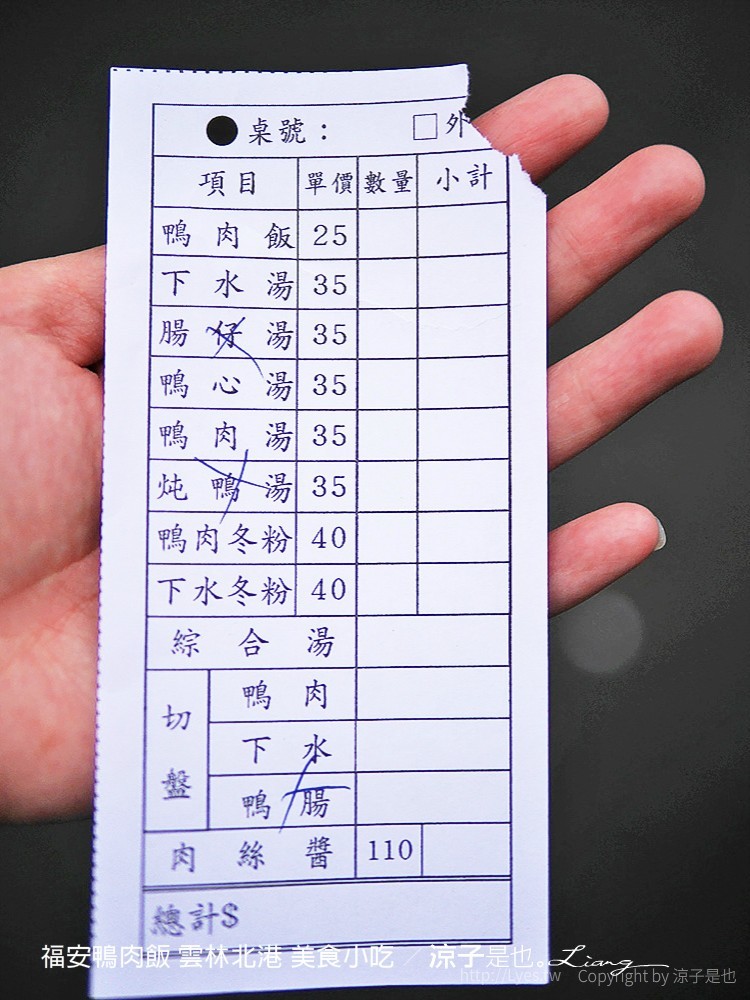 ●桌號： □外
項目 單價 數量 小計
鴨肉飯 25
下水湯 35
腸仔湯 35
鴨心湯 35
鴨肉湯 35
炖鴨湯 35
鴨肉冬粉 40
下水冬粉 40
綜合湯
切盤
鴨肉
下水
鴨腸
肉絲醬 110
總計$
福安鴨肉飯 雲林北港 美食小吃 ／ 涼子是也。Liang
http://Lyes.tw Copyright by 涼子是也